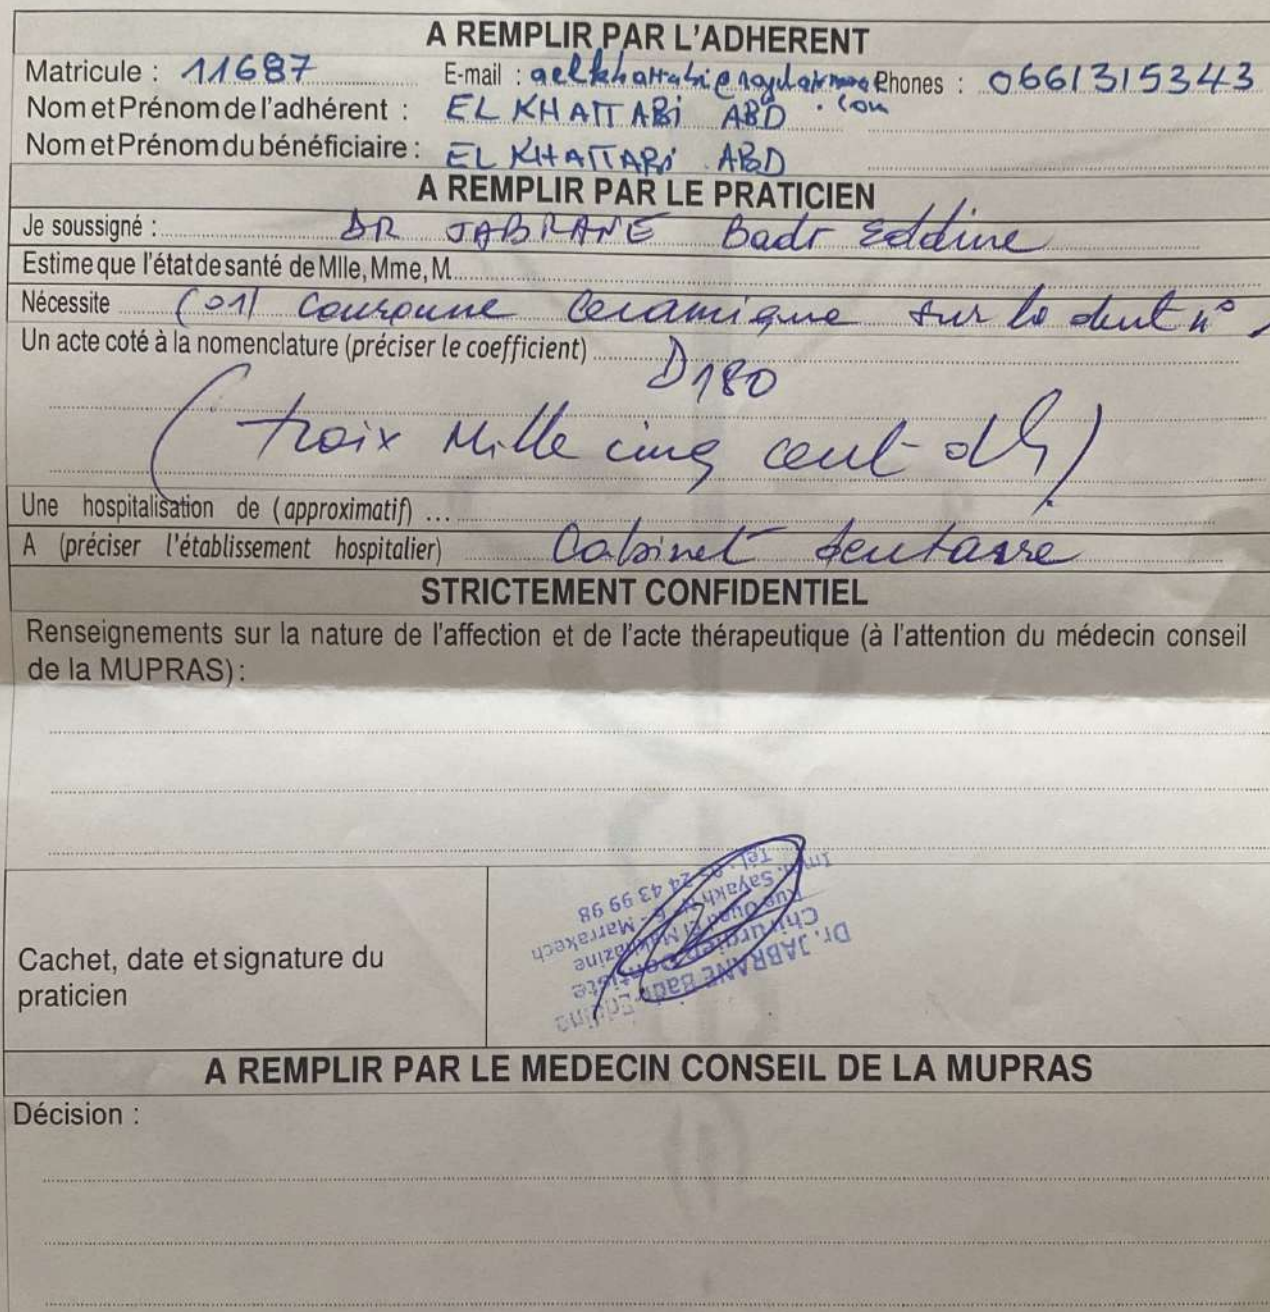 A REMPLIR PAR L'ADHERENT
Matricule : 11687 E-mail : aelkhattabi@royalairmaroc.com Phones : 0661315343
Nom et Prénom de l'adhérent : EL KHATTABi ABD
Nom et Prénom du bénéficiaire : EL KHATTABi ABD
A REMPLIR PAR LE PRATICIEN
Je soussigné : DR JABRANE Badr Eddine
Estime que l'état de santé de Mlle, Mme, M
Nécessite (01) Couronne Ceramique sur la dent n°
Un acte coté à la nomenclature (préciser le coefficient) D180
(troix Mille cinq cent dh)
Une hospitalisation de (approximatif) ...
A (préciser l'établissement hospitalier) Cabinet dentaire
STRICTEMENT CONFIDENTIEL
Renseignements sur la nature de l'affection et de l'acte thérapeutique (à l'attention du médecin conseil
de la MUPRAS) :
Cachet, date et signature du
praticien
Dr. JABRANE Badr-Eddine
Chirurgien Dentiste
Rue Oued El Makhazine
Imm. Sayakh N° 6 - Marrakech
Tél : 05 24 43 99 98
A REMPLIR PAR LE MEDECIN CONSEIL DE LA MUPRAS
Décision :